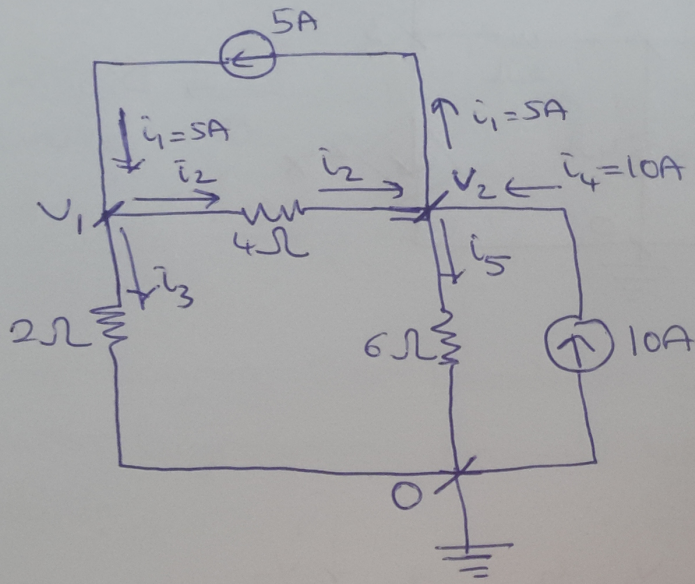 5A
i₁=5A
i₁=5A
i₂
i₂
V₂
i₄=10A
V₁
4Ω
i₃
i₅
2Ω
6Ω
10A
0